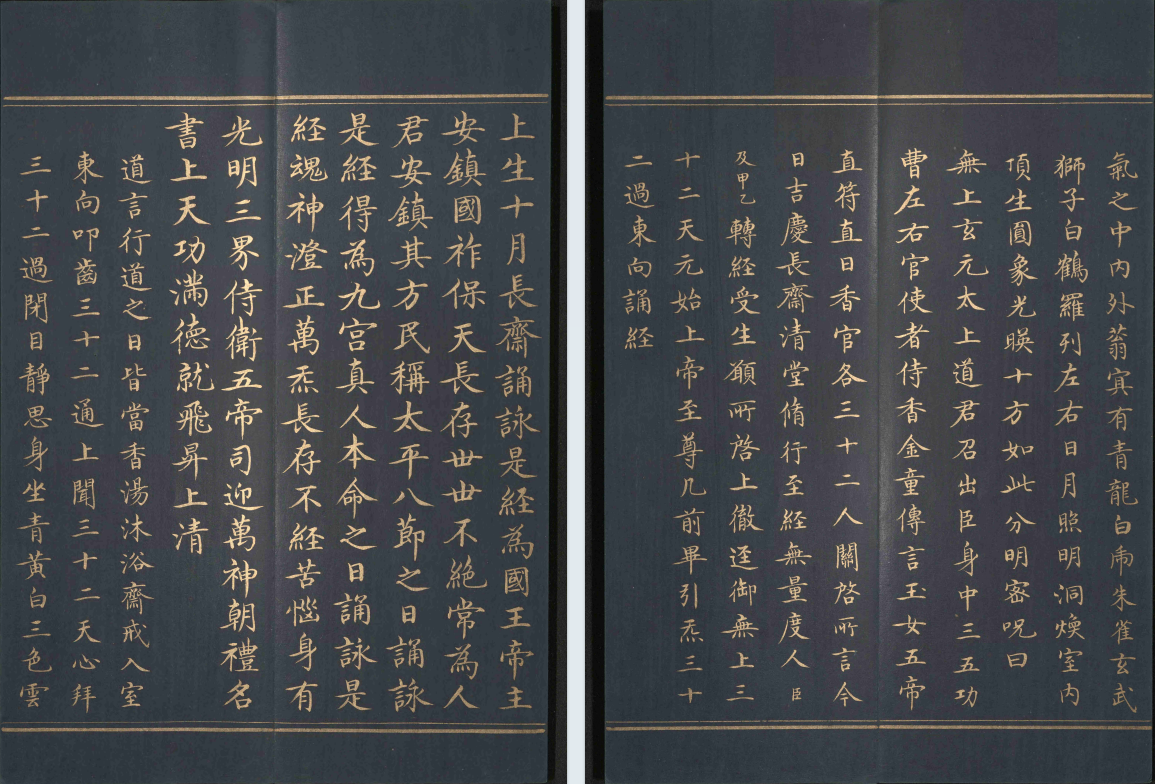 上生十月長齋誦詠是経為國王帝主
安鎮國祚保天長存世世不絶常為人
君安鎮其方民稱太平八節之日誦詠
是経得為九宫真人本命之日誦詠是
経魂神澄正萬炁長存不經苦惱身有
光明三界侍衛五帝司迎萬神朝禮名
書上天功滿徳就飛昇上清
道言行道之日皆當香湯沐浴齋戒入室
東向叩齒三十二通上聞三十二天心拜
三十二過閉目靜思身坐青黄白三色雲
氣之中内外蓊冥有青龍白虎朱雀玄武
獅子白鶴羅列左右日月照明洞煥室内
項生圓象光暎十方如此分明密呪曰
無上玄元太上道君召出臣身中三五功
曹左右官使者侍香金童傳言玉女五帝
直符直日香官各三十二人關啓所言今
日吉慶長齋清堂脩行至経無量度人臣
及甲乙轉経受生願所啓上徹逕御無上三
十二天元始上帝至尊几前畢引炁三十
二過東向誦経